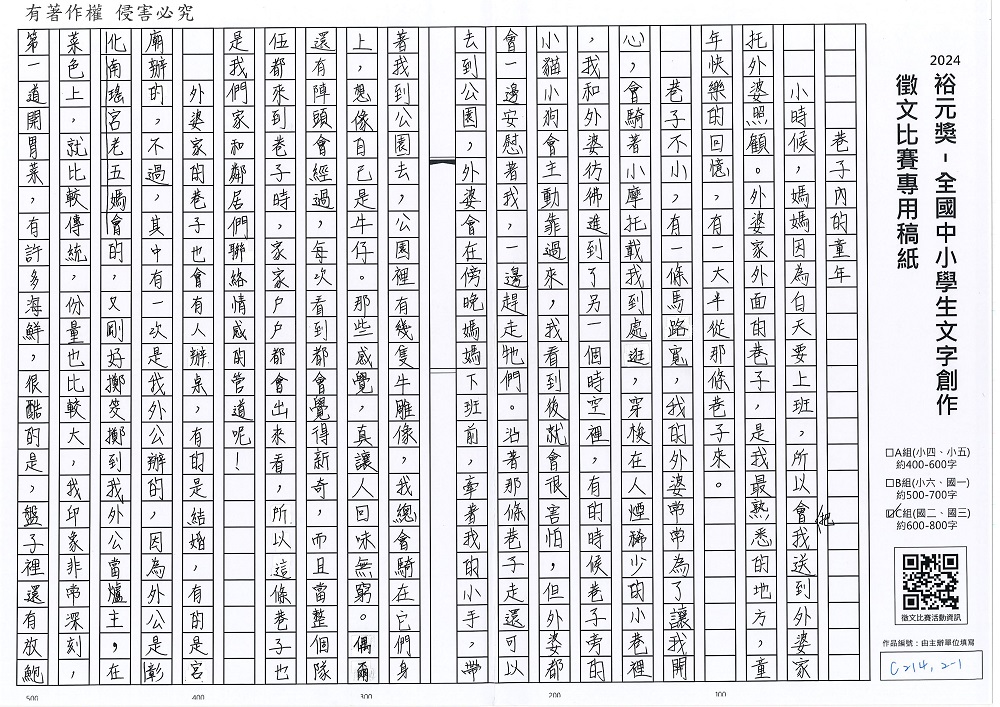 有著作權 侵害必究
2024
裕元獎-全國中小學生文字創作
徵文比賽專用稿紙
□A組(小四、小五)
約400-600字
□B組(小六、國一)
約500-700字
☑C組(國二、國三)
約600-800字
徵文比賽活動資訊
作品編號：由主辦單位填寫
C214,2-1
巷子內的童年
小時候，媽媽因為白天要上班，所以會把我送到外婆家
托外婆照顧。外婆家外面的巷子，是我最熟悉的地方，童
年快樂的回憶，有一大半從那條巷子來。
巷子不小，有一條馬路寬，我的外婆常常為了讓我開
心，會騎著小摩托載我到處逛，穿梭在人煙稀少的小巷裡
，我和外婆彷彿進到了另一個時空裡，有的時候巷子旁的
小貓小狗會主動靠過來，我看到後就會很害怕，但外婆都
會一邊安慰著我，一邊趕走牠們。沿著那條巷子走還可以
去到公園，外婆會在傍晚媽媽下班前，牽著我的小手，帶
著我到公園去，公園裡有幾隻牛雕像，我總會騎在它們身
上，想像自己是牛仔。那些感覺，真讓人回味無窮。偶爾
還有陣頭會經過，每次看到都會覺得新奇，而且當整個隊
伍都來到巷子時，家家戶戶都會出來看，所以這條巷子也
是我們家和鄰居們聯絡情感的管道呢！
外婆家的巷子也會有人辦桌，有的是結婚，有的是宮
廟辦的，不過，其中有一次是我外公辦的，因為外公是彰
化南瑤宮老五媽會的，又剛好擲筊擲到我外公當爐主，在
菜色上，就比較傳統，份量也比較大，我印象非常深刻，
第一道開胃菜，有許多海鮮，很酷的是，盤子裡還有放鮑
100
200
300
400
500